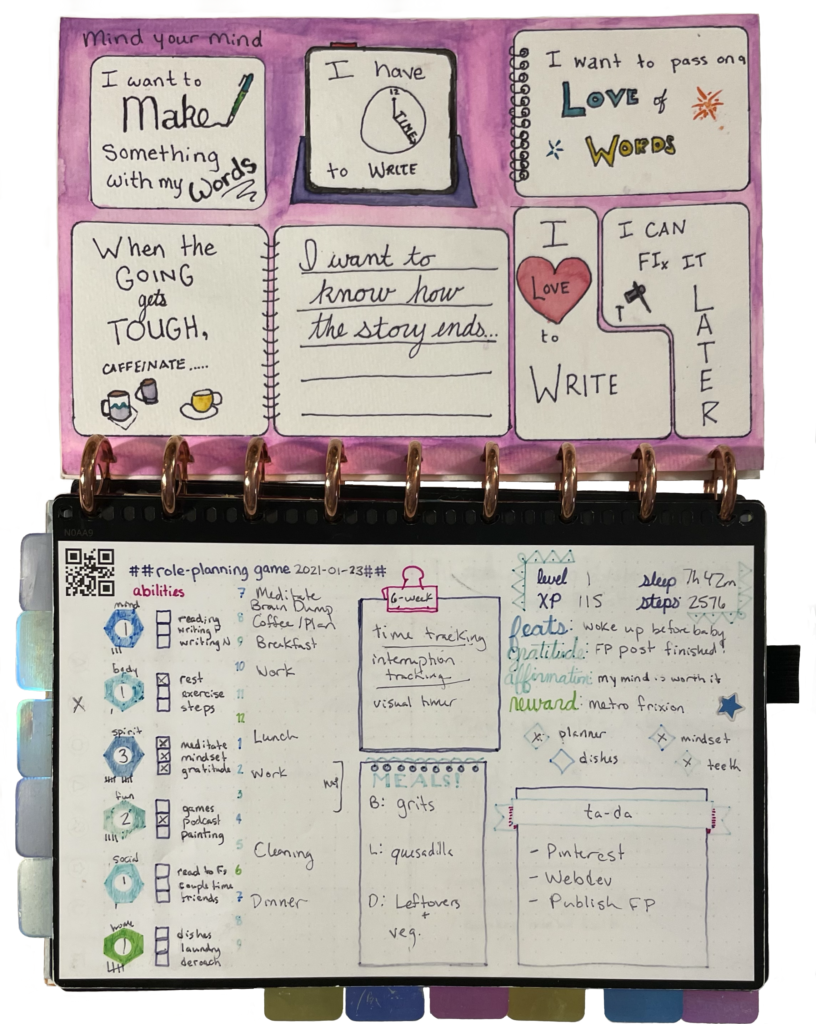 Mind your mind
I want to
Make
Something
with my Words
I have
12
TIME
to WRITE
I want to pass on a
LOVE of
WORDS
When the
GOING
gets
TOUGH,
CAFFEINATE.....
I want to
know how
the story ends...
I
LOVE
to
WRITE
I CAN
FIx IT
LATER
##role-planning game 2021-01-23##
abilities
mind
1
reading
writing P
writing N
body
1
rest
exercise
steps
spirit
3
meditate
mindset
gratitude
fun
2
games
podcast
painting
social
1
couple time
friends
home
1
dishes
laundry
7 Meditate
Brain Dump
8 Coffee/Plan
9 Breakfast
10 Work
11
12
1 Lunch
2 Work
3
4
5 Cleaning
6
7 Dinner
8
9
6-week
time tracking
interruption
tracking
visual timer
MEALS!
B: grits
L: quesadilla
D: Leftovers
+
veg.
level 1 sleep 7h 42m
XP 115 steps: 2576
feats: woke up before baby
gratitude: FP post finished!
affirmation: my mind is worth it
reward: metro frixion
x planner x mindset
dishes x teeth
ta-da
- Pinterest
- Webdev
- Publish FP